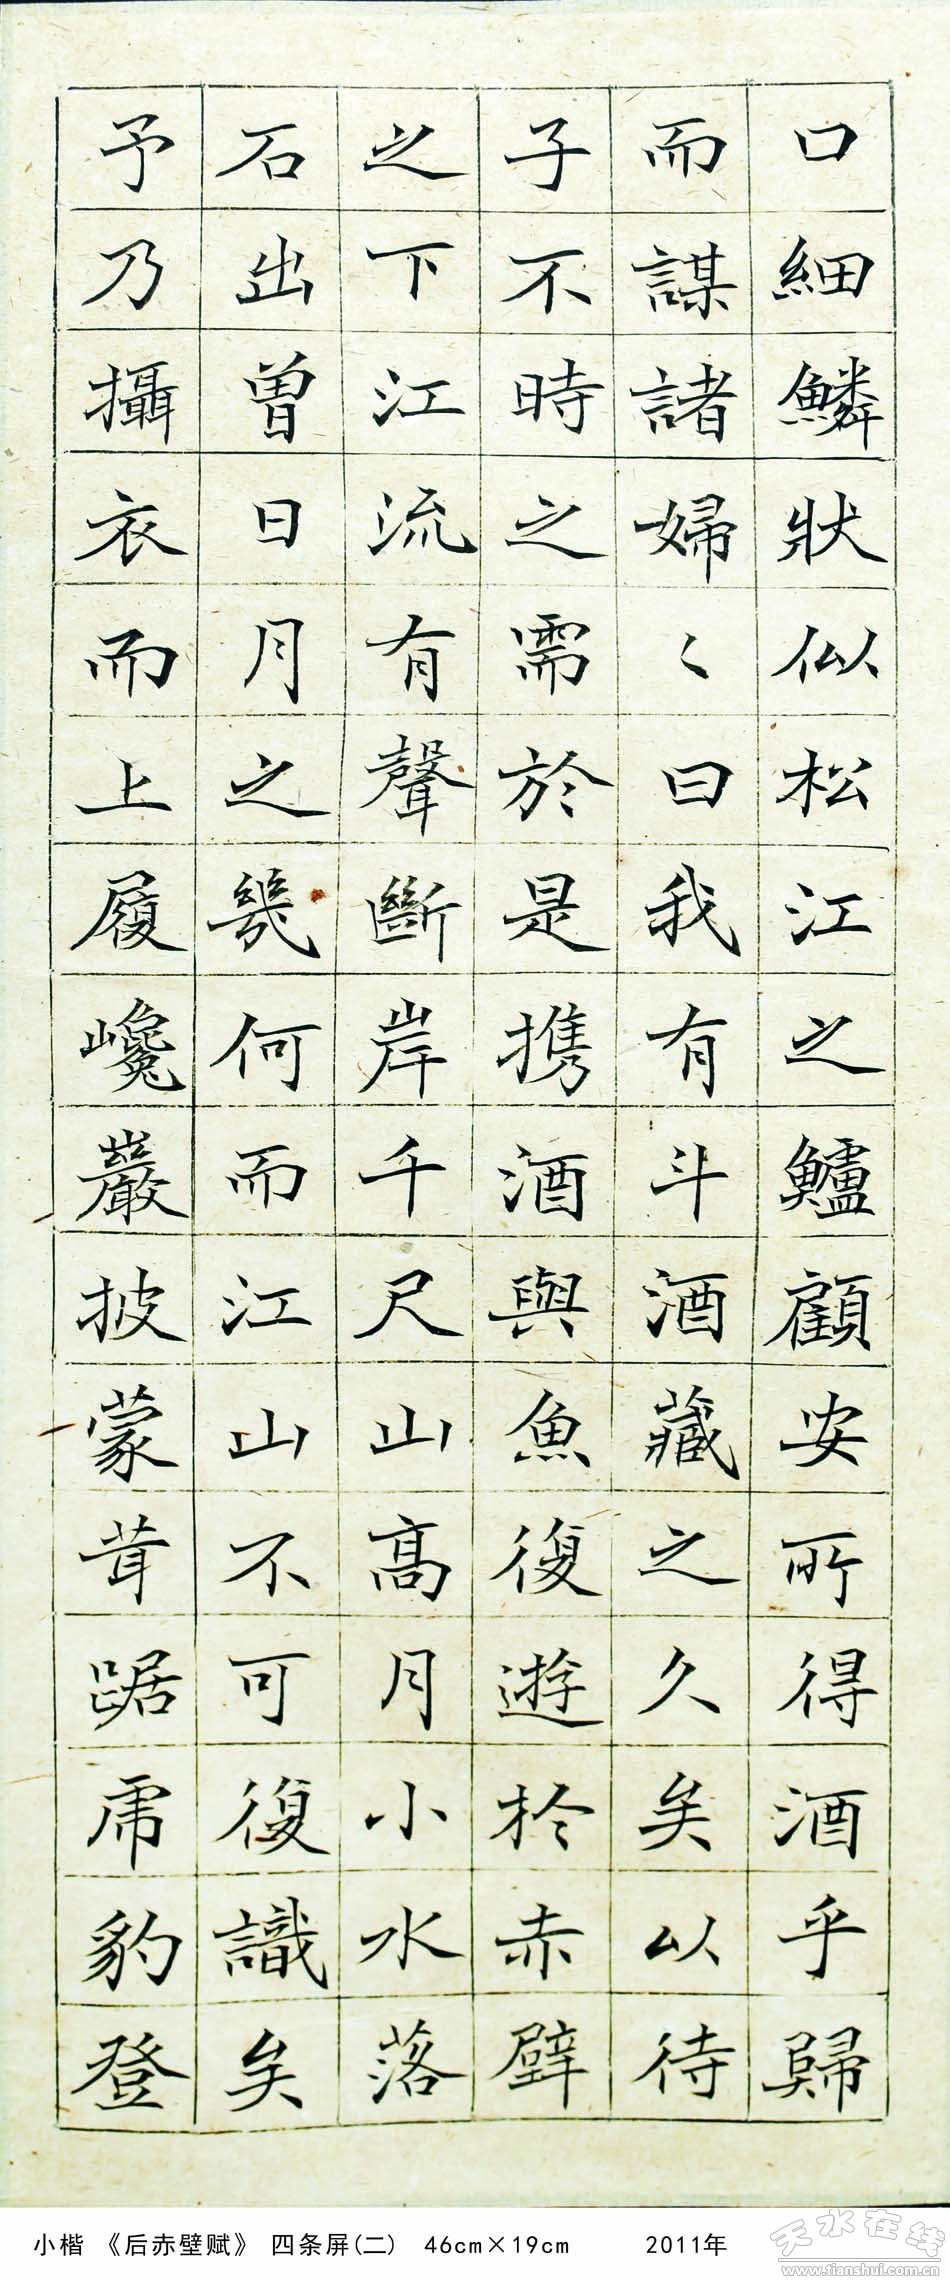 口細鱗狀似松江之鱸顧安所得酒乎歸
而謀諸婦〻曰我有斗酒藏之久矣以待
子不時之需於是携酒與魚復遊於赤壁
之下江流有聲斷岸千尺山高月小水落
石出曾日月之幾何而江山不可復識矣
予乃攝衣而上履巉巖披蒙茸踞虎豹登
小楷 《后赤壁赋》 四条屏(二) 46cm×19cm 2011年
天水在线
www.tianshui.com.cn